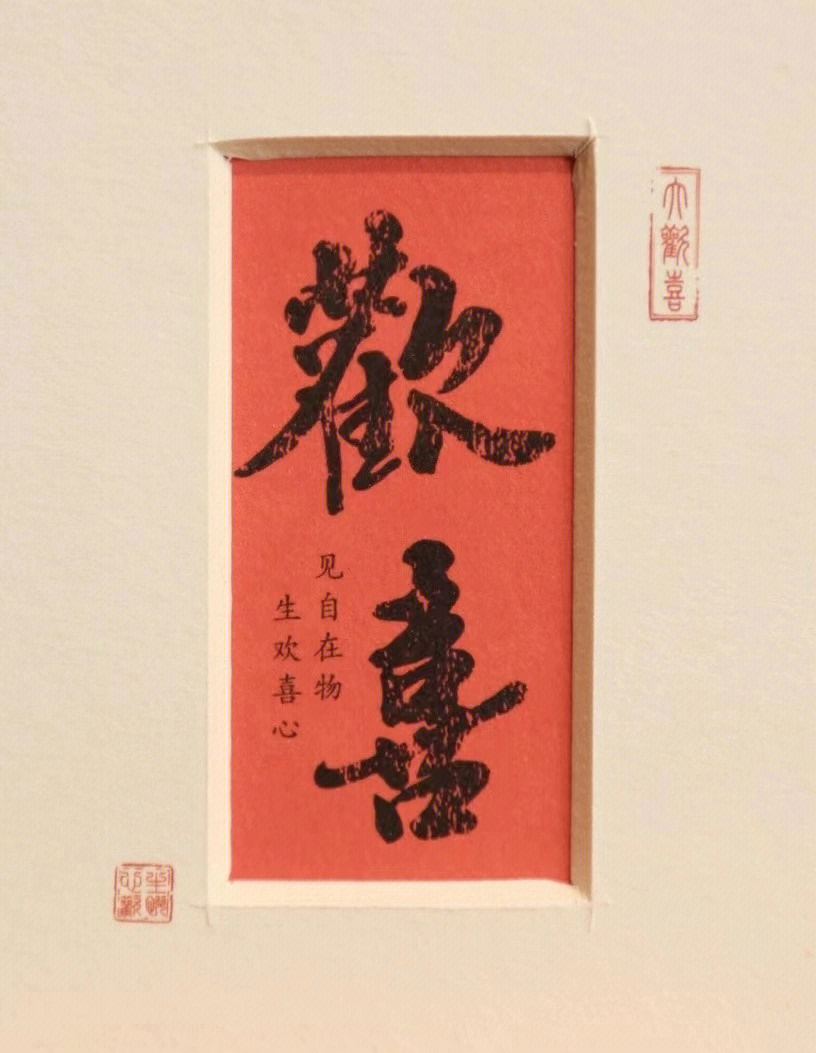 歡喜
见自在物
生欢喜心
大歡喜